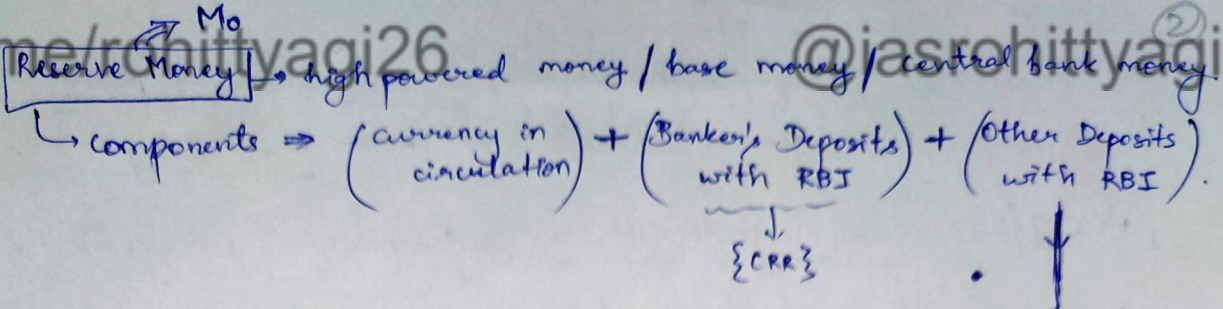 Mo
②
me/rohittyagi26 @iasrohittyagi
Reserve Money → high powered money / base money / central bank money
↳ components ⇒ (currency in circulation) + (Banker's Deposits with RBI) + (Other Deposits with RBI).
{CRR}